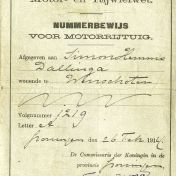 Motor- en Rijwielwet.
NUMMERBEWIJS
VOOR MOTORRIJTUIG.
Afgegeven aan Simon Hennis
Dallinga
wonende te Winschoten
Volgnummer 1219
Letter A
Groningen, den 26 Feb. 1914
De Commissaris der Koningin in de
provincie Groningen,